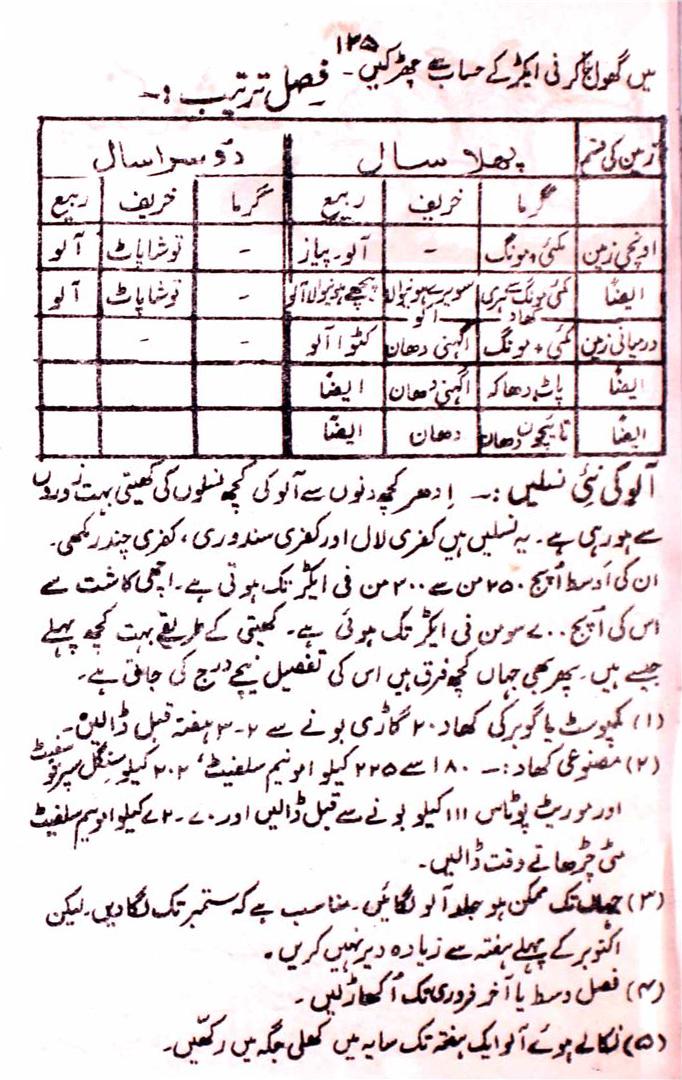 ۱۲۵
میں گھول کر فی ایکڑ کے حساب سے چھڑکیں۔
فصل ترتیب :۔
زمین کی قسم | پہلا سال | دوسرا سال
گرما | خریف | ربیع | گرما | خریف | ربیع
اونچی زمین | مکئی + مونگ | - | آلو۔ پیاز | - | توشاپاٹ | آلو
ایضاً | مکئی مونگ سے ہری کھاد | سویرے ہونیوالا آلو | پیچھے ہونیوالا آلو | - | توشاپاٹ | آلو
درمیانی زمین | مکئی + مونگ | اگہنی دھان | کٹوا آلو | - | -
ایضاً | پاٹ، دھاکہ | اگہنی دھان | ایضاً
ایضاً | تائیچون دھان | دھان | ایضاً
آلو کی نئی نسلیں :۔ اِدھر کچھ دنوں سے آلو کی کچھ نسلوں کی کھیتی بہت زوروں
سے ہو رہی ہے۔ یہ نسلیں ہیں کفری لال اور کفری سندوری، کفری چندر مکھی۔
ان کی اَوسط اُپیج ۲۵۰ من سے ۲۰۰ من فی ایکڑ تک ہوتی ہے۔ اچھی کاشت سے
اس کی اُپیج ۷۰۰ سو من فی ایکڑ تک ہوئی ہے۔ کھیتی کے طریقے بہت کچھ پہلے
جیسے ہیں۔ پھر بھی جہاں کچھ فرق ہیں اس کی تفصیل نیچے درج کی جاتی ہے۔
(۱) کمپوسٹ یا گوبر کی کھاد ۲۰ گاڑی بونے سے ۲۔۳ ہفتہ قبل ڈالیں۔
(۲) مصنوعی کھاد :۔ ۱۸۰ سے ۲۲۵ کیلو امونیم سلفیٹ، ۲۰۲ کیلو سنگل سپر فوسفیٹ
اور موریٹ پوٹاس ۱۱۱ کیلو بونے سے قبل ڈالیں اور ۷۰۔۷۲ کیلو امونیم سلفیٹ
مٹی چڑھاتے وقت ڈالیں۔
(۳) جہاں تک ممکن ہو جلد آلو لگائیں۔ مناسب ہے کہ ستمبر تک لگا دیں۔ لیکن
اکتوبر کے پہلے ہفتہ سے زیادہ دیر نہیں کریں۔
(۴) فصل وسط یا آخر فروری تک اُکھاڑ لیں۔
(۵) نکالے ہوئے آلو ایک ہفتہ تک سایہ میں کھلی جگہ میں رکھیں۔